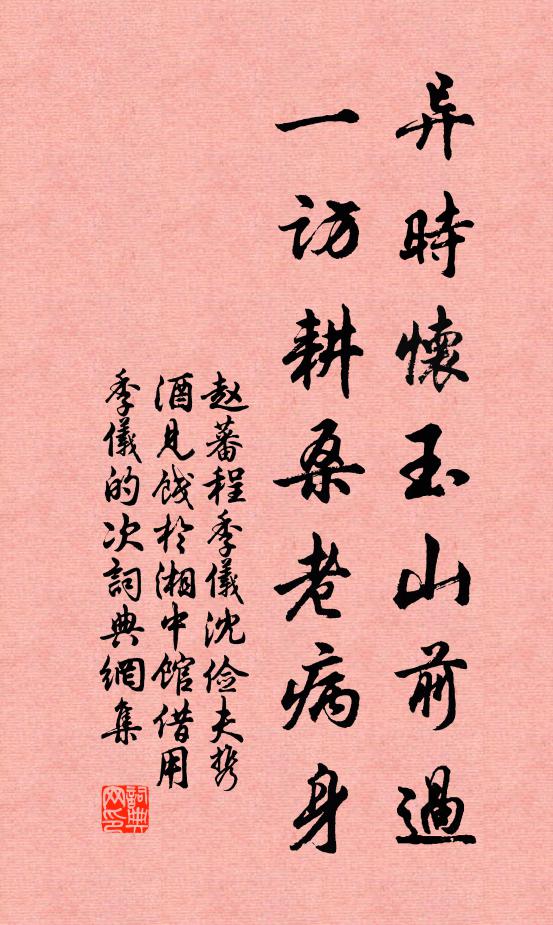 异時懷玉山前過
一訪耕桑老病身
赵蕃程季儀沈俭夫携
酒見餞於湘中館借用
季儀的次詞典網集
詞典网印